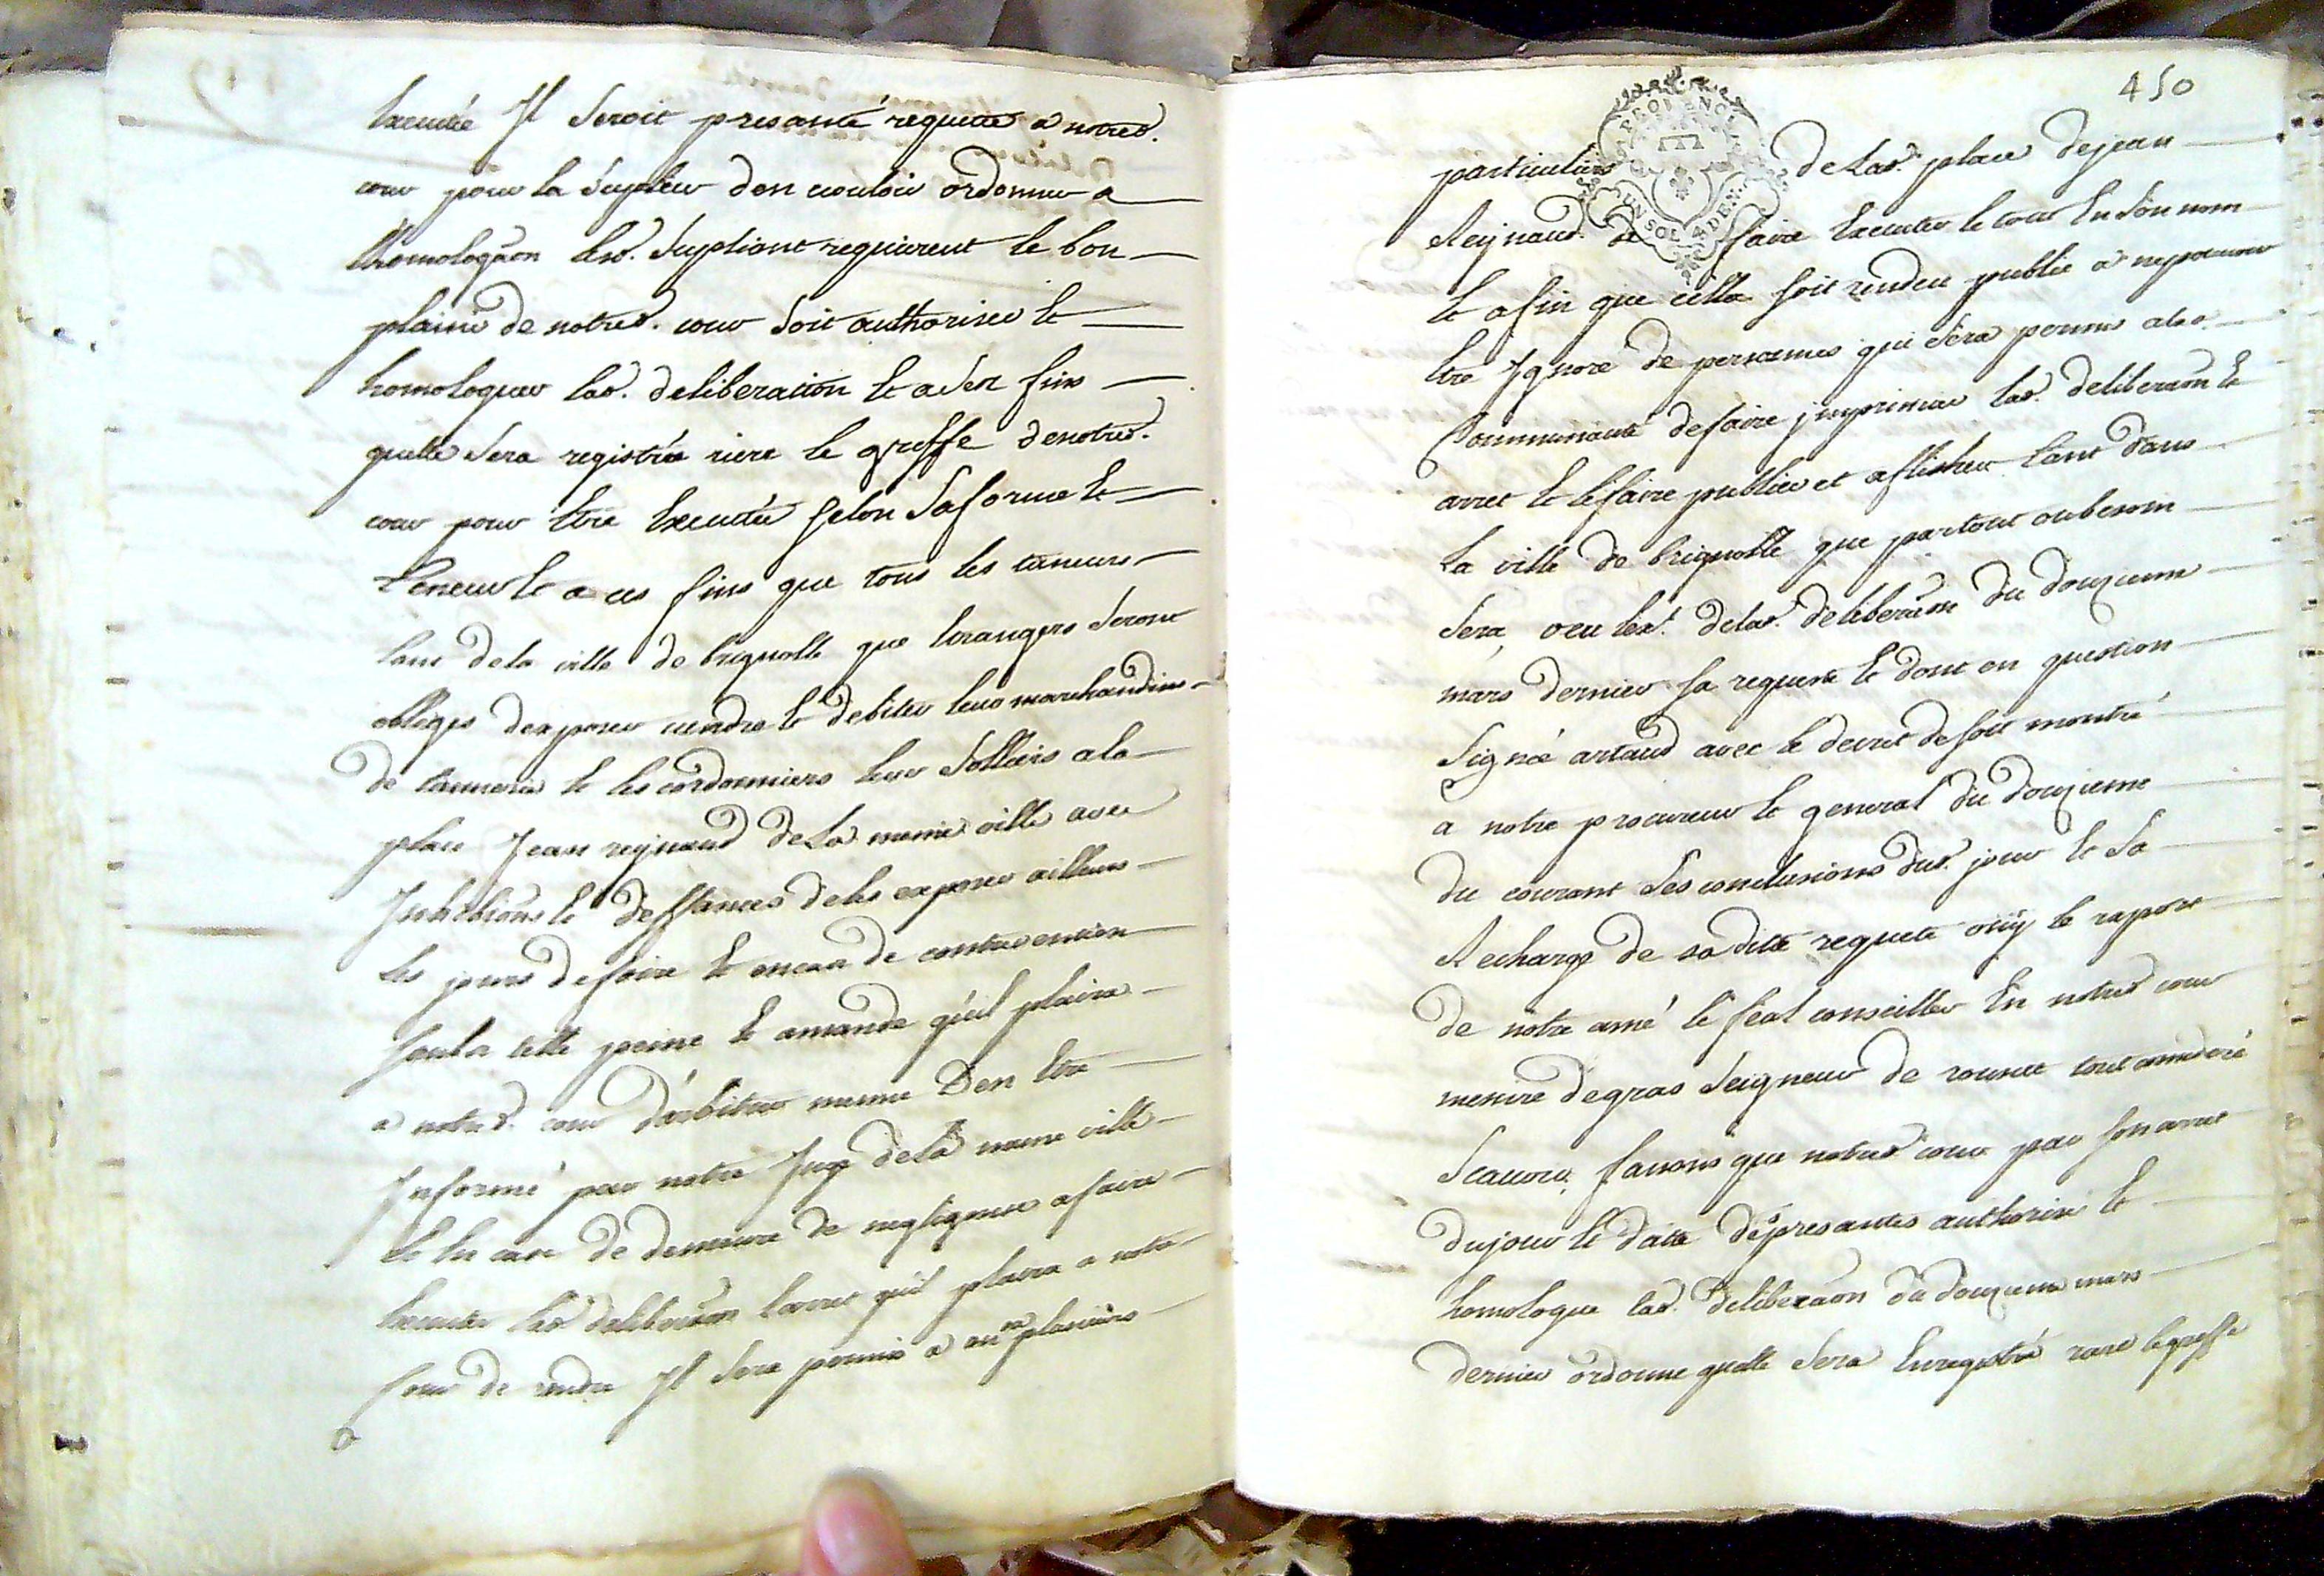 Executée Il Seroit presanté requette a notred.
cour pour la Suplier d'en vouloir ordonner a
lhomologaon lesd. Supliant requierent le bon
plaisir de notred. cour Soit authoriser et
homologuer lad. deliberation et a Ses fins
quelle Sera registrée riere le greffe denotred.
cour pour Etre Executée Selon Saforme et
teneur et a ces fins que tous les taneurs
tant dela ville de brignolle que Etrangers Seront
obliges dexposer vendre et debiter leurs marchandises
de tannerie et les cordonniers leur Solliers ala
place Jean reynaud dela meme ville avec
Inhibitions et deffances deles exposer ailleurs
les jours defoire et en cas de contravention
Soubz telle peine et amande qu'il plaira
a notred. cour d'arbitrer meme D'en Etre
Informé par notre Juge dela meme ville
Et En cas de demeure de negligence afaire
Executer lad. deliberaon larret quil plaira a notre
Cour de rendre Il Sera permis a un ou plusieurs
450
PROVENCE
UN SOL 4 DEN.
particuliers de Lad. place dejean
Reynaud de faire Executer le tout En Son nom
Et afin que cella soit rendeu public a ne pouvoir
Etre Ignoré de personnes qui Sera permis alad.
Communauté defaire jmprimer lad. deliberaon Et
arret Et le faire publier et afficher tant dans
La ville de brignolle que partout oubesoin
Sera, veu lext. delad. deliberaon du douzieme
mars dernier sa requette Et dont en question
Signé artaud avec le decret desoit montré
a notre procureur Et general du douzieme
du courant Ses conclusions dud. jour et Sa
Recharge de sa ditte requete ouy le raport
de notre amé Et feal conseiller En notred. cour
messire degras Seigneur de tout consideré
Scavoir faisons que notred. cour par Son arret
dujour Et datte des presantes authorise Et
homologue lad. deliberaon du douzieme mars
dernier ordonne quelle Sera Enregistré riere legreffe